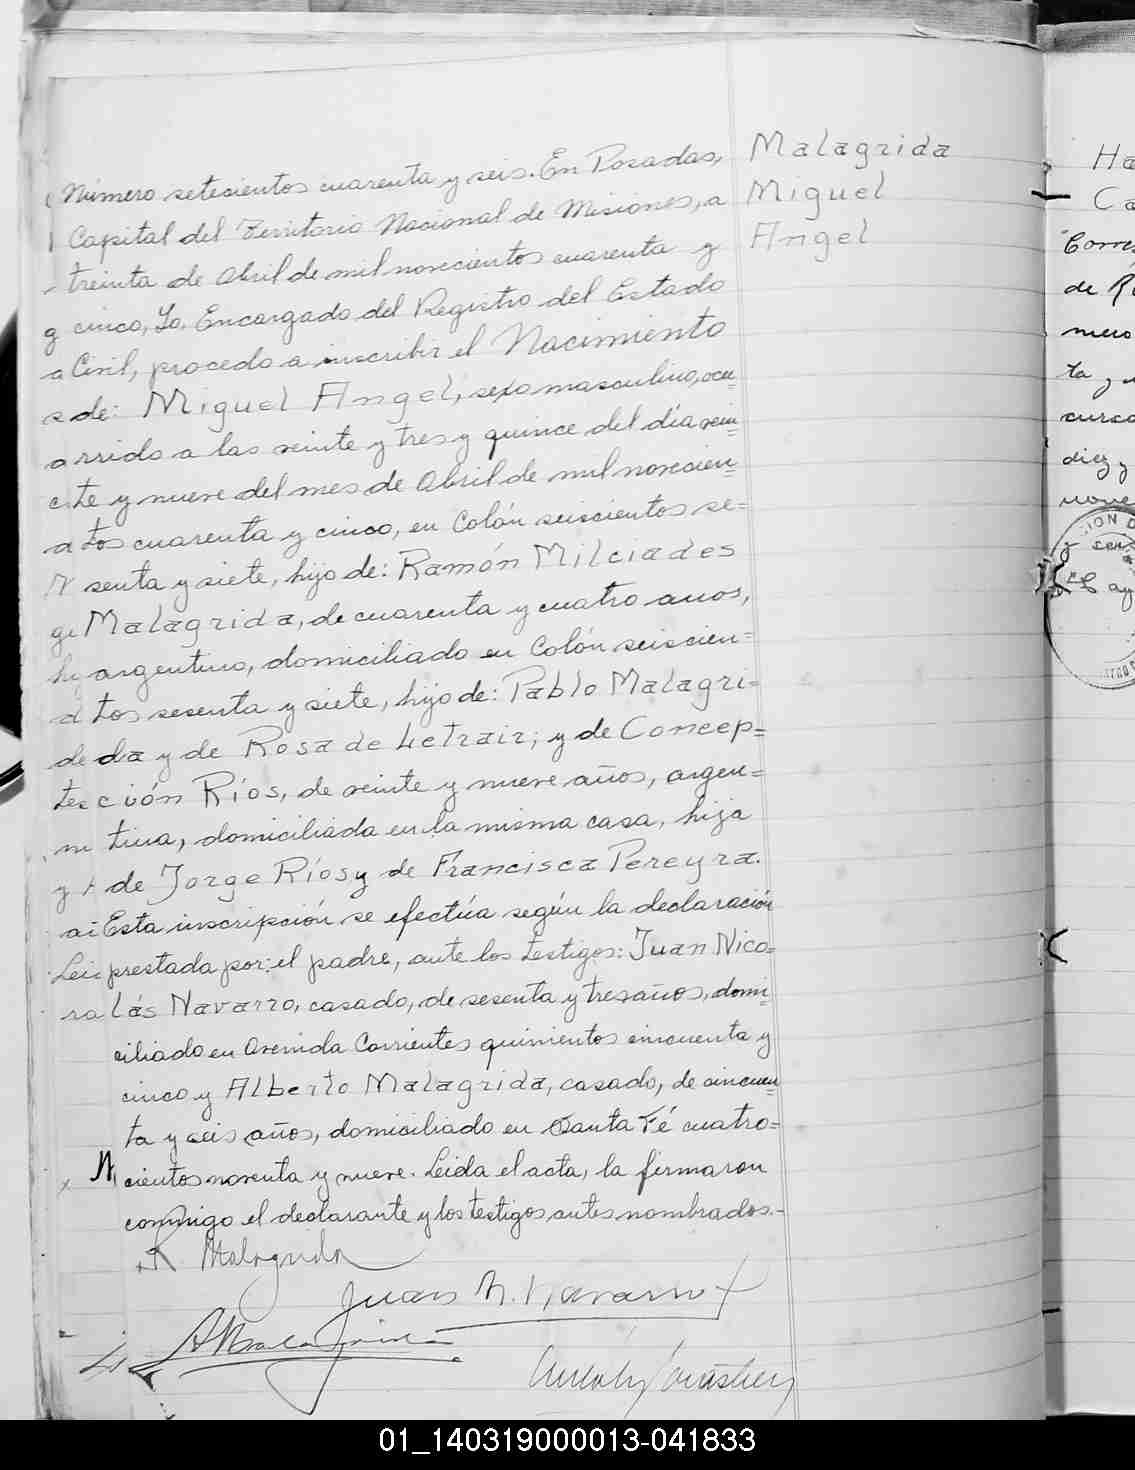 Malagrida
Miguel
Angel
Número setecientos cuarenta y seis. En Posadas,
Capital del Territorio Nacional de Misiones, a
treinta de Abril de mil novecientos cuarenta y
cinco, Yo, Encargado del Registro del Estado
Civil, procedo a inscribir el Nacimiento
de: Miguel Angel, sexo masculino, ocu=
rrido a las veinte y tres y quince del día vein=
te y nueve del mes de Abril de mil novecien=
tos cuarenta y cinco, en Colón seiscientos se=
senta y siete, hijo de: Ramón Milciades
Malagrida, de cuarenta y cuatro anos,
argentino, domiciliado en Colón seiscien=
tos sesenta y siete, hijo de: Pablo Malagri=
da y de Rosa de Letrair; y de Concep=
ción Ríos, de veinte y nueve años, argen=
tina, domiciliada en la misma casa, hija
de Jorge Ríos y de Francisca Pereyra.
Esta inscripción se efectúa según la declaración
prestada por: el padre, ante los testigos: Juan Nico=
lás Navarro, casado, de sesenta y tres años, domi=
ciliado en Avenida Corrientes quinientos cincuenta y
cinco y Alberto Malagrida, casado, de cincuen=
ta y seis años, domiciliado en Santa Fé cuatro=
cientos noventa y nueve. Leida el acta, la firmaron
conmigo el declarante y los testigos antes nombrados.-
R Malagrida
Juan N. Navarro
A Malagrida
Ha
Ca
Corres
de R
mero
ta y
curso
diez y
nove
01_140319000013-041833